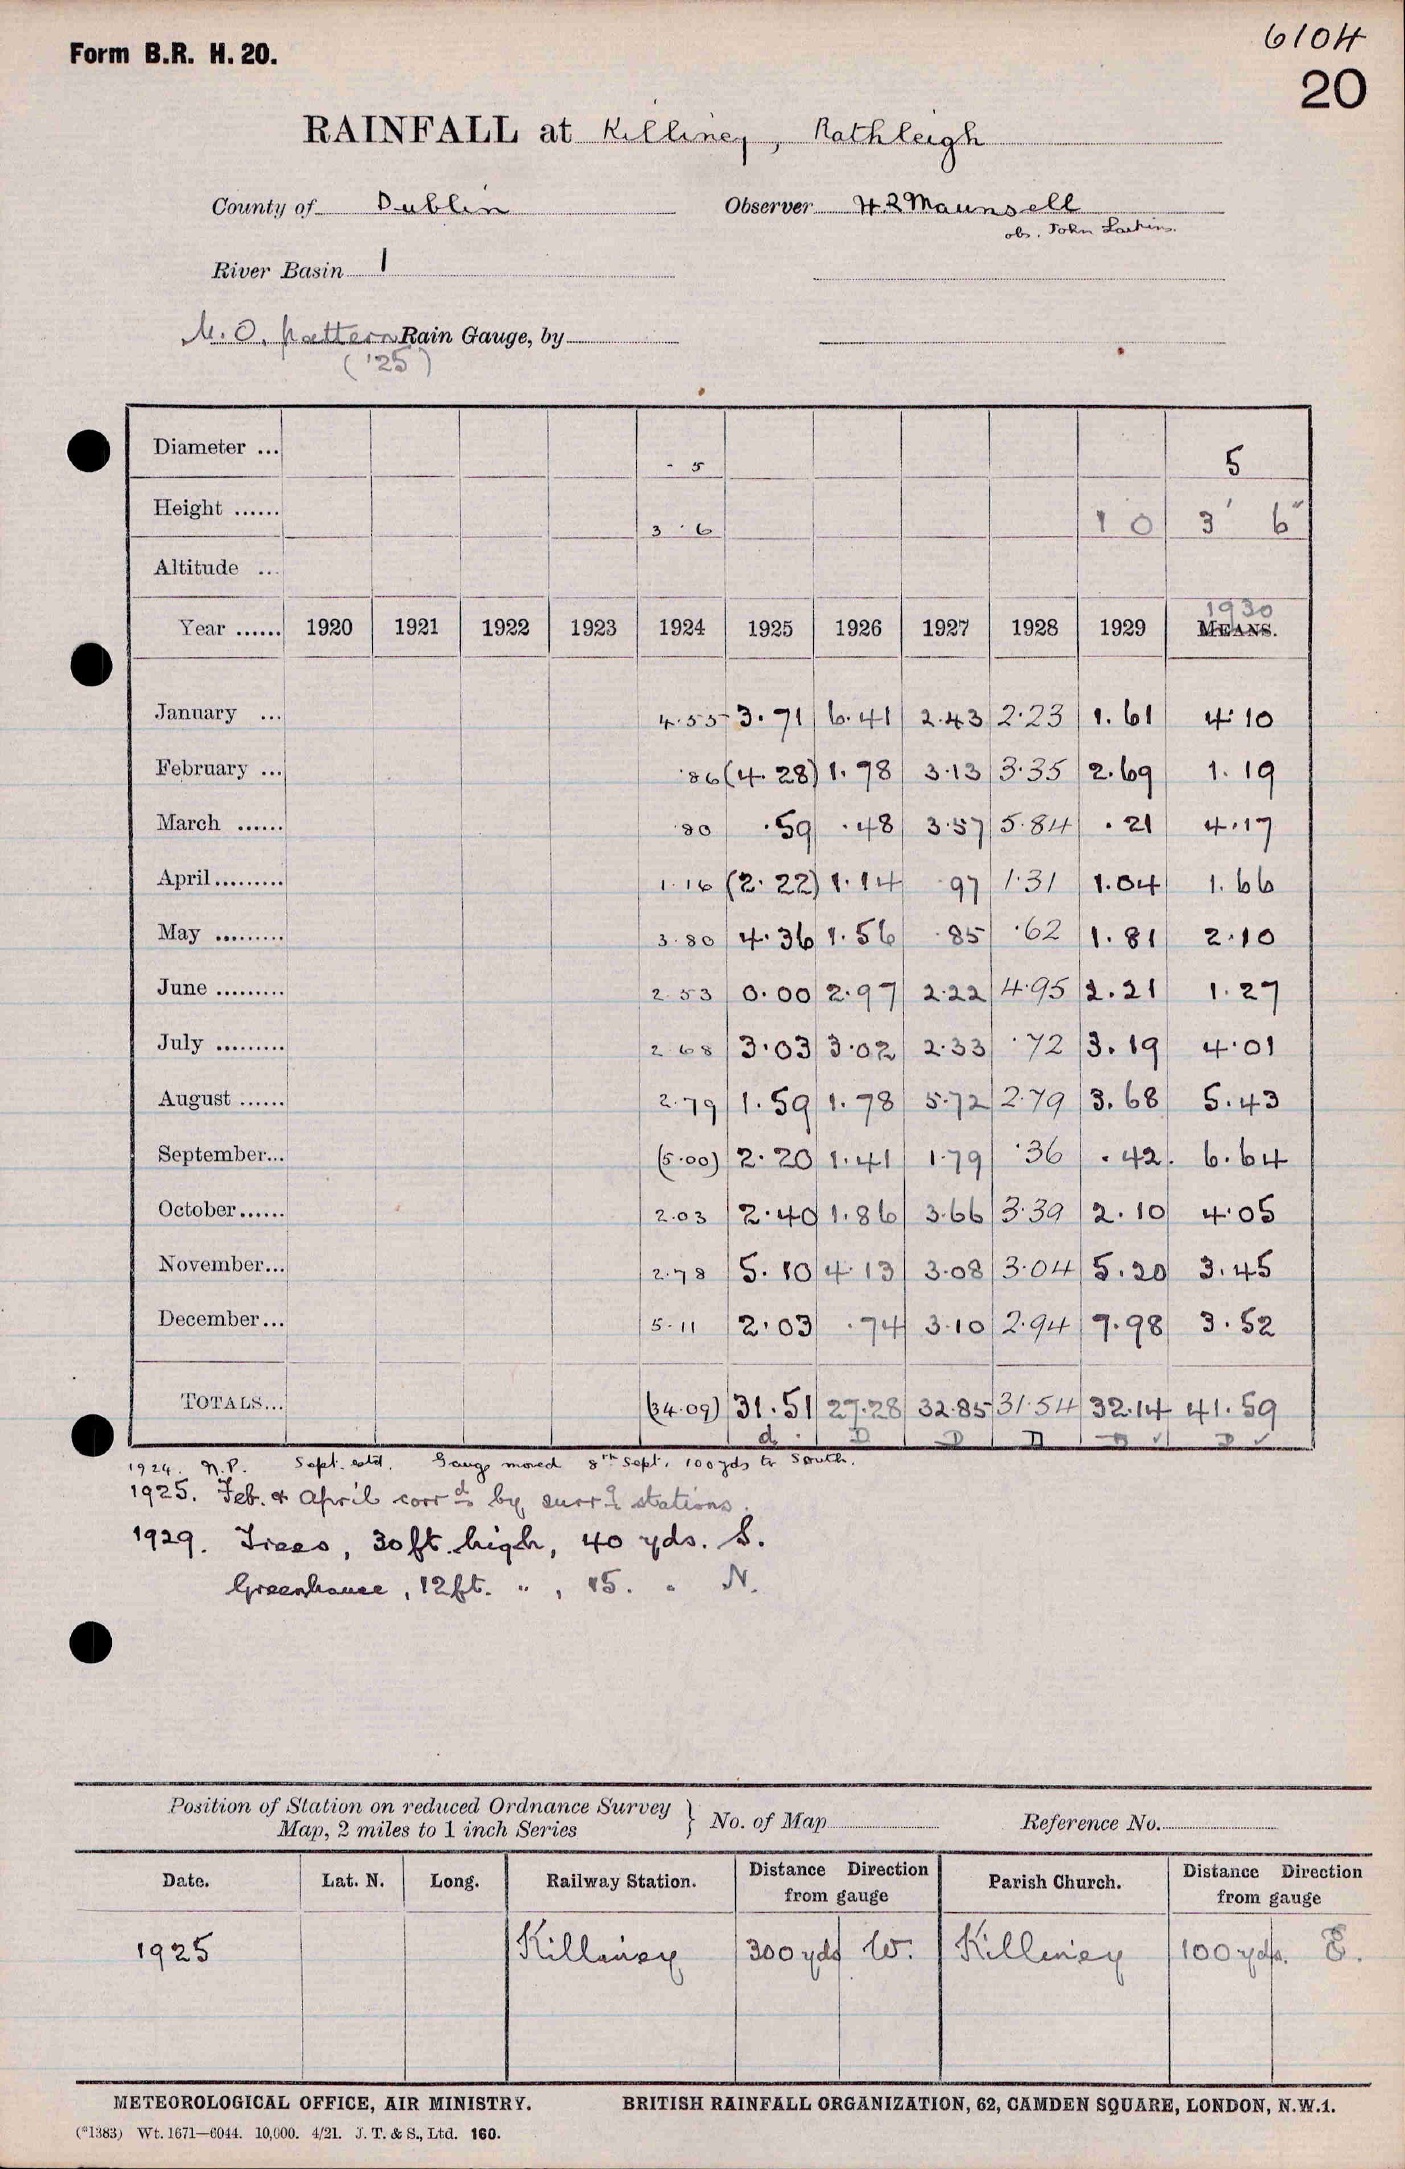 Form B.R. H. 20.
6104
20
RAINFALL at Killiney, Rathleigh
County of Dublin Observer H.R Maunsell
obs. John Larkin.
River Basin 1
M.O. pattern Rain Gauge, by
('25)
Diameter ... - 5 5
Height ...... 3 . 6 1 0 3' 6"
Altitude ...
Year ...... 1920 1921 1922 1923 1924 1925 1926 1927 1928 1929 1930 MEANS.
January ... 4.55 3.71 6.41 2.43 2.23 1.61 4.10
February ... .86 (4.28) 1.78 3.13 3.35 2.69 1.19
March ...... .80 .59 .48 3.57 5.84 .21 4.17
April ......... 1.16 (2.22) 1.14 .97 1.31 1.04 1.66
May ......... 3.80 4.36 1.56 .85 .62 1.81 2.10
June ......... 2.53 0.00 2.97 2.22 4.95 2.21 1.27
July ......... 2.68 3.03 3.02 2.33 .72 3.19 4.01
August ...... 2.79 1.59 1.78 5.72 2.79 3.68 5.43
September... (5.00) 2.20 1.41 1.79 .36 .42 6.64
October...... 2.03 2.40 1.86 3.66 3.39 2.10 4.05
November... 2.78 5.10 4.13 3.08 3.04 5.20 3.45
December... 5.11 2.03 .74 3.10 2.94 7.98 3.52
TOTALS... (34.09) 31.51 27.28 32.85 31.54 32.14 41.59
d. D D D D ✓ D ✓
1924. N.P. Sept. estd. Gauge moved 8th Sept. 100 yds to South.
1925. Feb. & April corrd by surrg stations.
1929. Trees, 30ft. high, 40 yds. S.
Greenhouse, 12ft. " , 15. " N.
Position of Station on reduced Ordnance Survey
Map, 2 miles to 1 inch Series } No. of Map Reference No.
Date. Lat. N. Long. Railway Station. Distance Direction from gauge Parish Church. Distance Direction from gauge
1925 Killiney 300 yds W. Killiney 100 yds. E.
METEOROLOGICAL OFFICE, AIR MINISTRY. BRITISH RAINFALL ORGANIZATION, 62, CAMDEN SQUARE, LONDON, N.W.1.
(*1383) Wt. 1671—6044. 10,000. 4/21. J. T. & S., Ltd. 160.